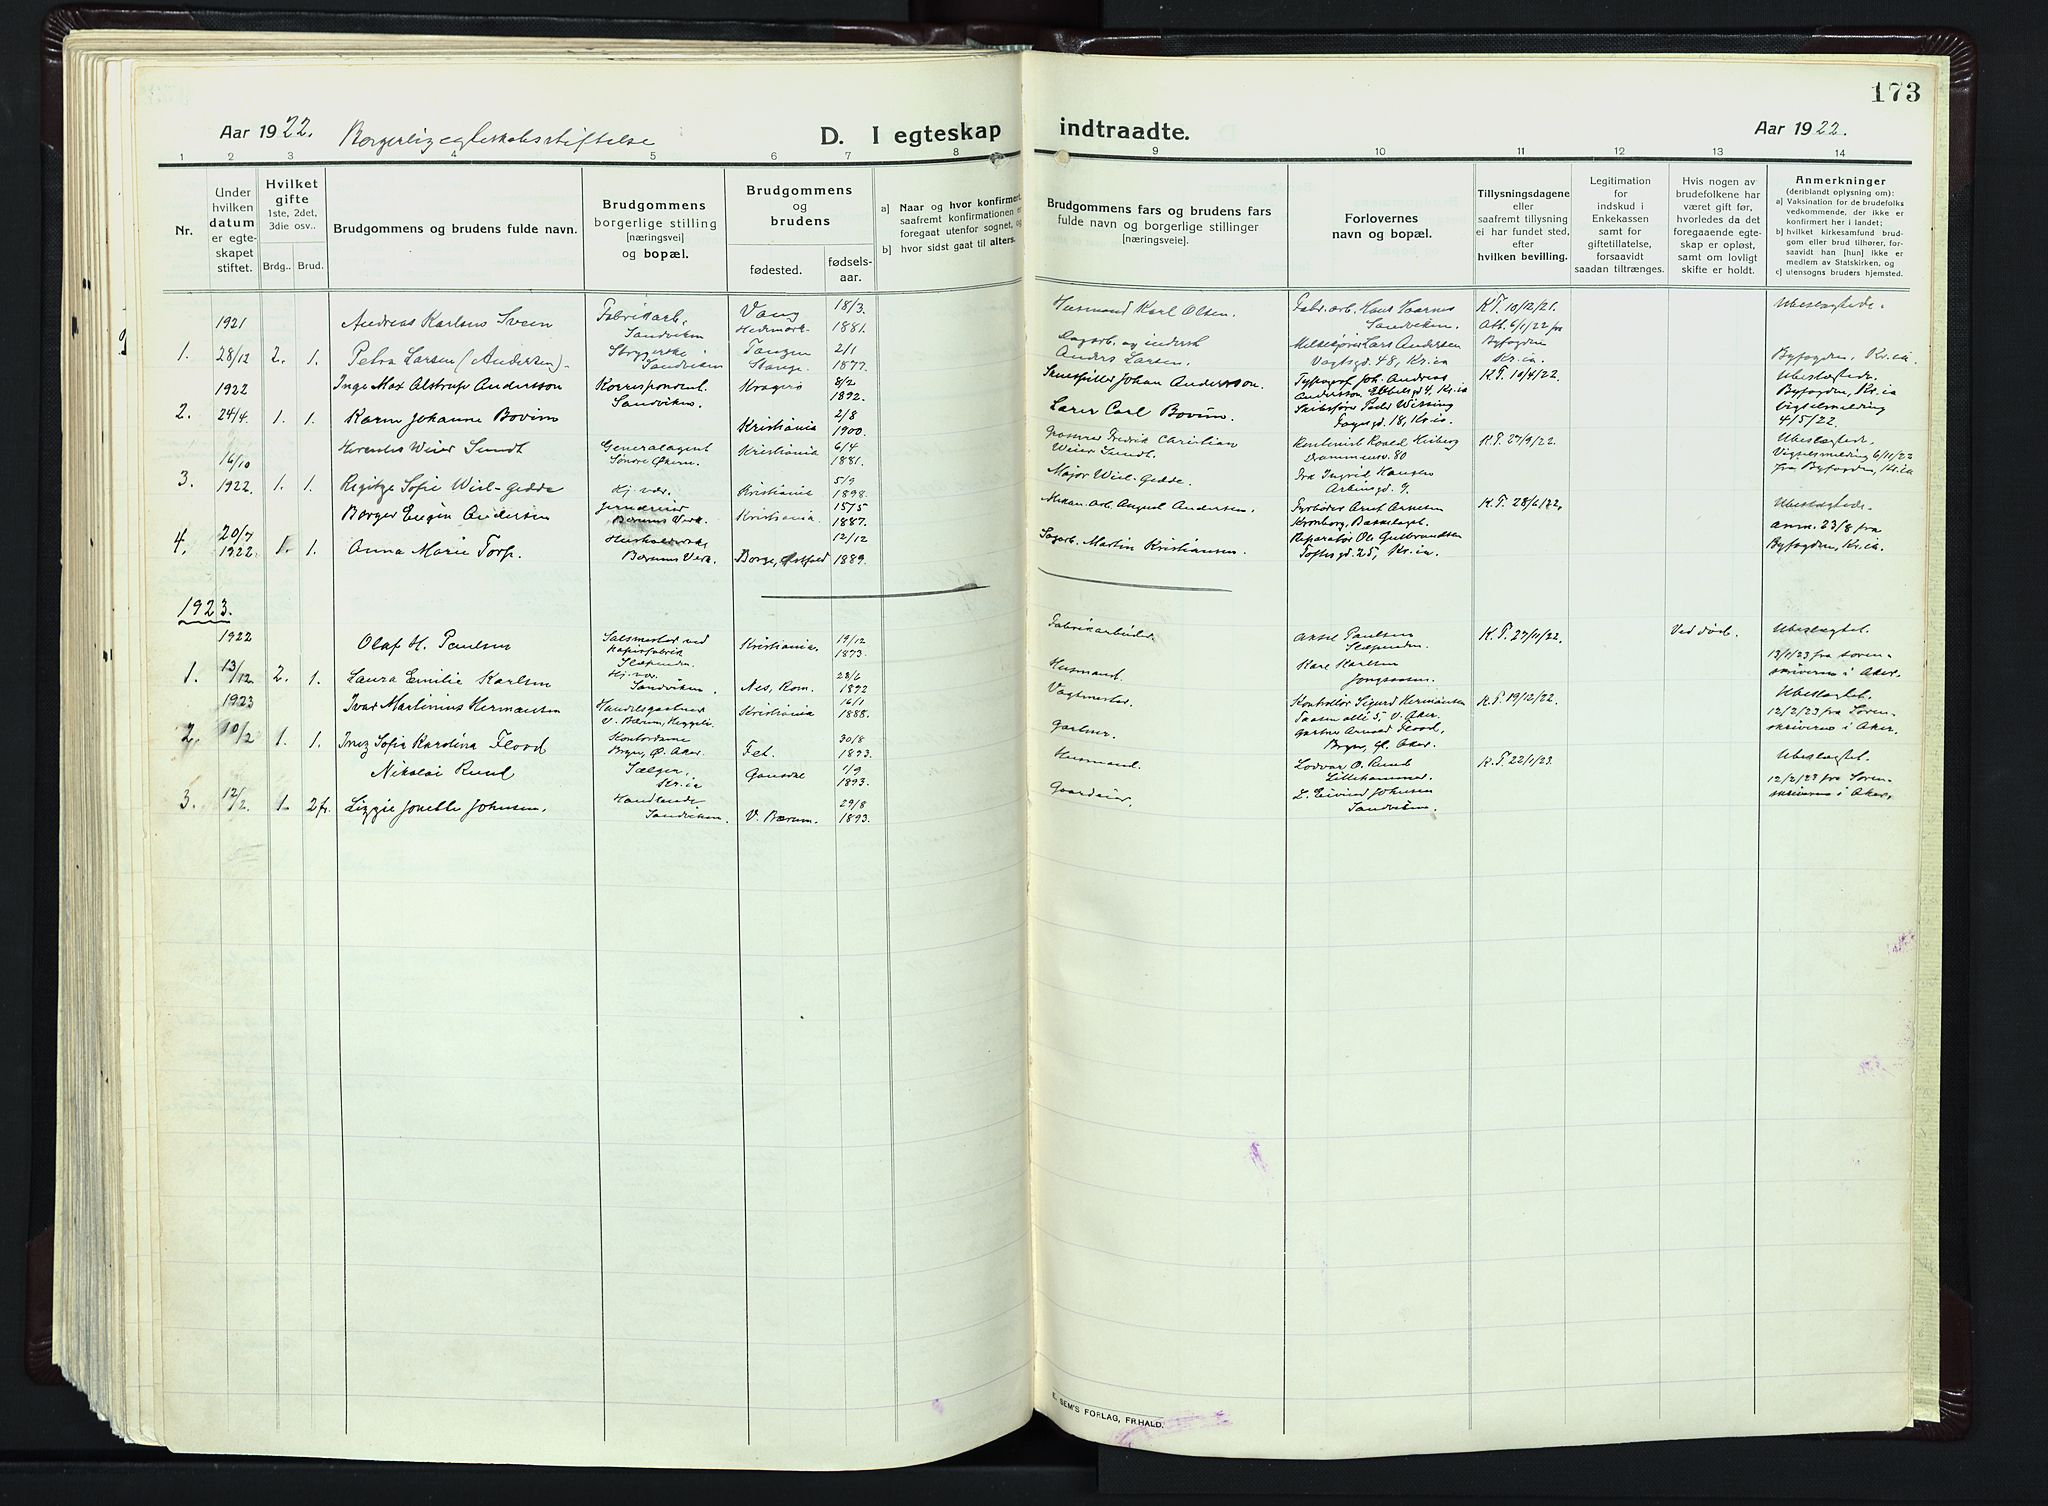 173
Aar 1922. Borgerlig egteskabsstiftelse
D. I egteskap indtraadte.
Aar 1922.
1 2 3 4 5 6 7 8 9 10 11 12 13 14
Nr.
Under hvilken datum er egteskapet stiftet.
Hvilket gifte
1ste, 2det, 3die osv..
Brdg.. Brud.
Brudgommens og brudens fulde navn.
Brudgommens borgerlige stilling [næringsvei] og bopæl.
Brudgommens og brudens
fødested.
fødselsaar.
a] Naar og hvor konfirmert, saafremt konfirmationen er foregaat utenfor sognet, og
b] hvor sidst gaat til alters.
Brudgommens fars og brudens fars fulde navn og borgerlige stillinger [næringsveie].
Forlovernes navn og bopæl.
Tillysningsdagene eller saafremt tillysning ei har fundet sted, efter hvilken bevilling.
Legitimation for indskud i Enkekassen samt for giftetillatelse, forsaavidt saadan tiltrænges.
Hvis nogen av brudefolkene har været gift før, hvorledes da det foregaaende egteskap er opløst, samt om lovligt skifte er holdt.
Anmerkninger
(deriblandt oplysning om):
a] Vaksination for de brudefolks vedkommende, der ikke er konfirmert her i landet;
b] hvilket kirkesamfund brudgom eller brud tilhører, forsaavidt han [hun] ikke er medlem av Statskirken, og
c] utensogns bruders hjemsted.
1921 Andreas Karlsen Sveen Fabrikarb. Sandviken Vang Hedmark. 18/3. 1881. Husmand Karl Olsen. Fabr. arb. Hans Haarnes Sandviken. K.T. 10/12/21. Att. 6/1/22 fra Ubeslægtede.
1. 28/12 2. 1. Petra Larsen (Andersen). Strygerske Sandviken Tangen Stange. 2/1 1877. Dagarb. og inderst Anders Larsen. Lars Andersen Vogtsgd. 48, Kr.ia Byfogden Kr.ia. Byfogden, Kr.ia.
1922 Inge Max Alstrup Andersson Korrespondent. Sandviken. Kragerø 8/2 1892. Skuespiller Johan Andersson. Typograf Joh. Andreas Andersson, gd 4, Kr.ia K.T. 10/4/22. Ubeslægtede. Byfogden, Kr.ia
2. 24/4. 1. 1. Karen Johanne Bovim Kristiania 2/8 1900. Lærer Carl Bovim. Skibsfører Peder Wissing gd. 18, Kr.ia. Vigselmelding 4/5/22.
16/10 Weier Sundt Generalagent Søndre Økern. Kristiania 6/4 1881. Grosserer Fredrik Christian Weier Sundt. Roald Kiberg Drammensv. 80 K.T. 27/9/22. Ubeslægtede. Vigselsmelding 6/11/22
3. 1922. 1. 1. Regitze Sofie Wiel-Gedde Hj. vær. Kristiania 5/9 1898. Major Wiel-Gedde. Frk Ingrid Hansen Arbinsgd. 7. fra Byfogden, Kr.ia
Børger Eugen Andersen Jerndreier Bærums Verk. Kristiania. 15/5 1887. Mekan. arb. August Andersen. Fyrbøter Arnt Arnesen Kronborg, Bækkelaget. K.T. 28/6/22. Ubeslægtede.
4. 20/7 1922. 1. 1. Anna Marie Torp. Husholderske Bærums Verk. Borge, Østfold 12/12 1889. Sagarb. Martin Kristiansen. Reparatør Ole Gulbrandsen Toftesgd. 25, Kr.ia. anm. 23/8 fra Byfogden, Kr.ia.
1923.
1922 Olaf H. Paulsen Salsmester ved Papirfabrik Slæpenden. Kristiania. 19/12 1873. Fabrikarbeider Aksel Paulsen Slæpenden. K.T. 27/11/22. Ved død. Ubeslægtet.
1. 13/12 2. 1. Laura Emilie Karlsen Hj. vær. Sandviken. Nes, Rom. 28/6 1892 Husmand. Kare Karlsen Jongsaasen. 13/1/23 fra Sorenskriveren i Aker.
1923 Ivar Martinius Hermansen Handelsgartner V. Bærum, Heggeli. Kristiania 16/1 1888. Vagtmester. Kontrollør Sigurd Hermansen Taasen allé 5, V. Aker. K.T. 19/12/22. Ubeslægtet.
2. 10/2 1. 1. Inez Sofie Karolina Flood Kontordame Bryn, Ø. Aker. Fet. 30/8 1893. Gartner. Gartner Arnold Flood, Bryn, Ø. Aker. 12/2/23 fra Sorenskriveren i Aker.
Nikolai Ruud Sælger, Kr.ia Gausdal 1/9 1893. Husmand. Lodvar O. Ruud Lillehammer. K.T. 22/1/23. Ubeslægtet.
3. 12/2. 1. 2 fr. Lizzie Jonette Johnsen. Handlende Sandviken. V. Bærum. 29/8 1893. Gaardeier. L. Eivind Johnsen Sandviken. 12/2/23 fra Sorenskriveren i Aker.
E. SEM'S FORLAG, FR.HALD.